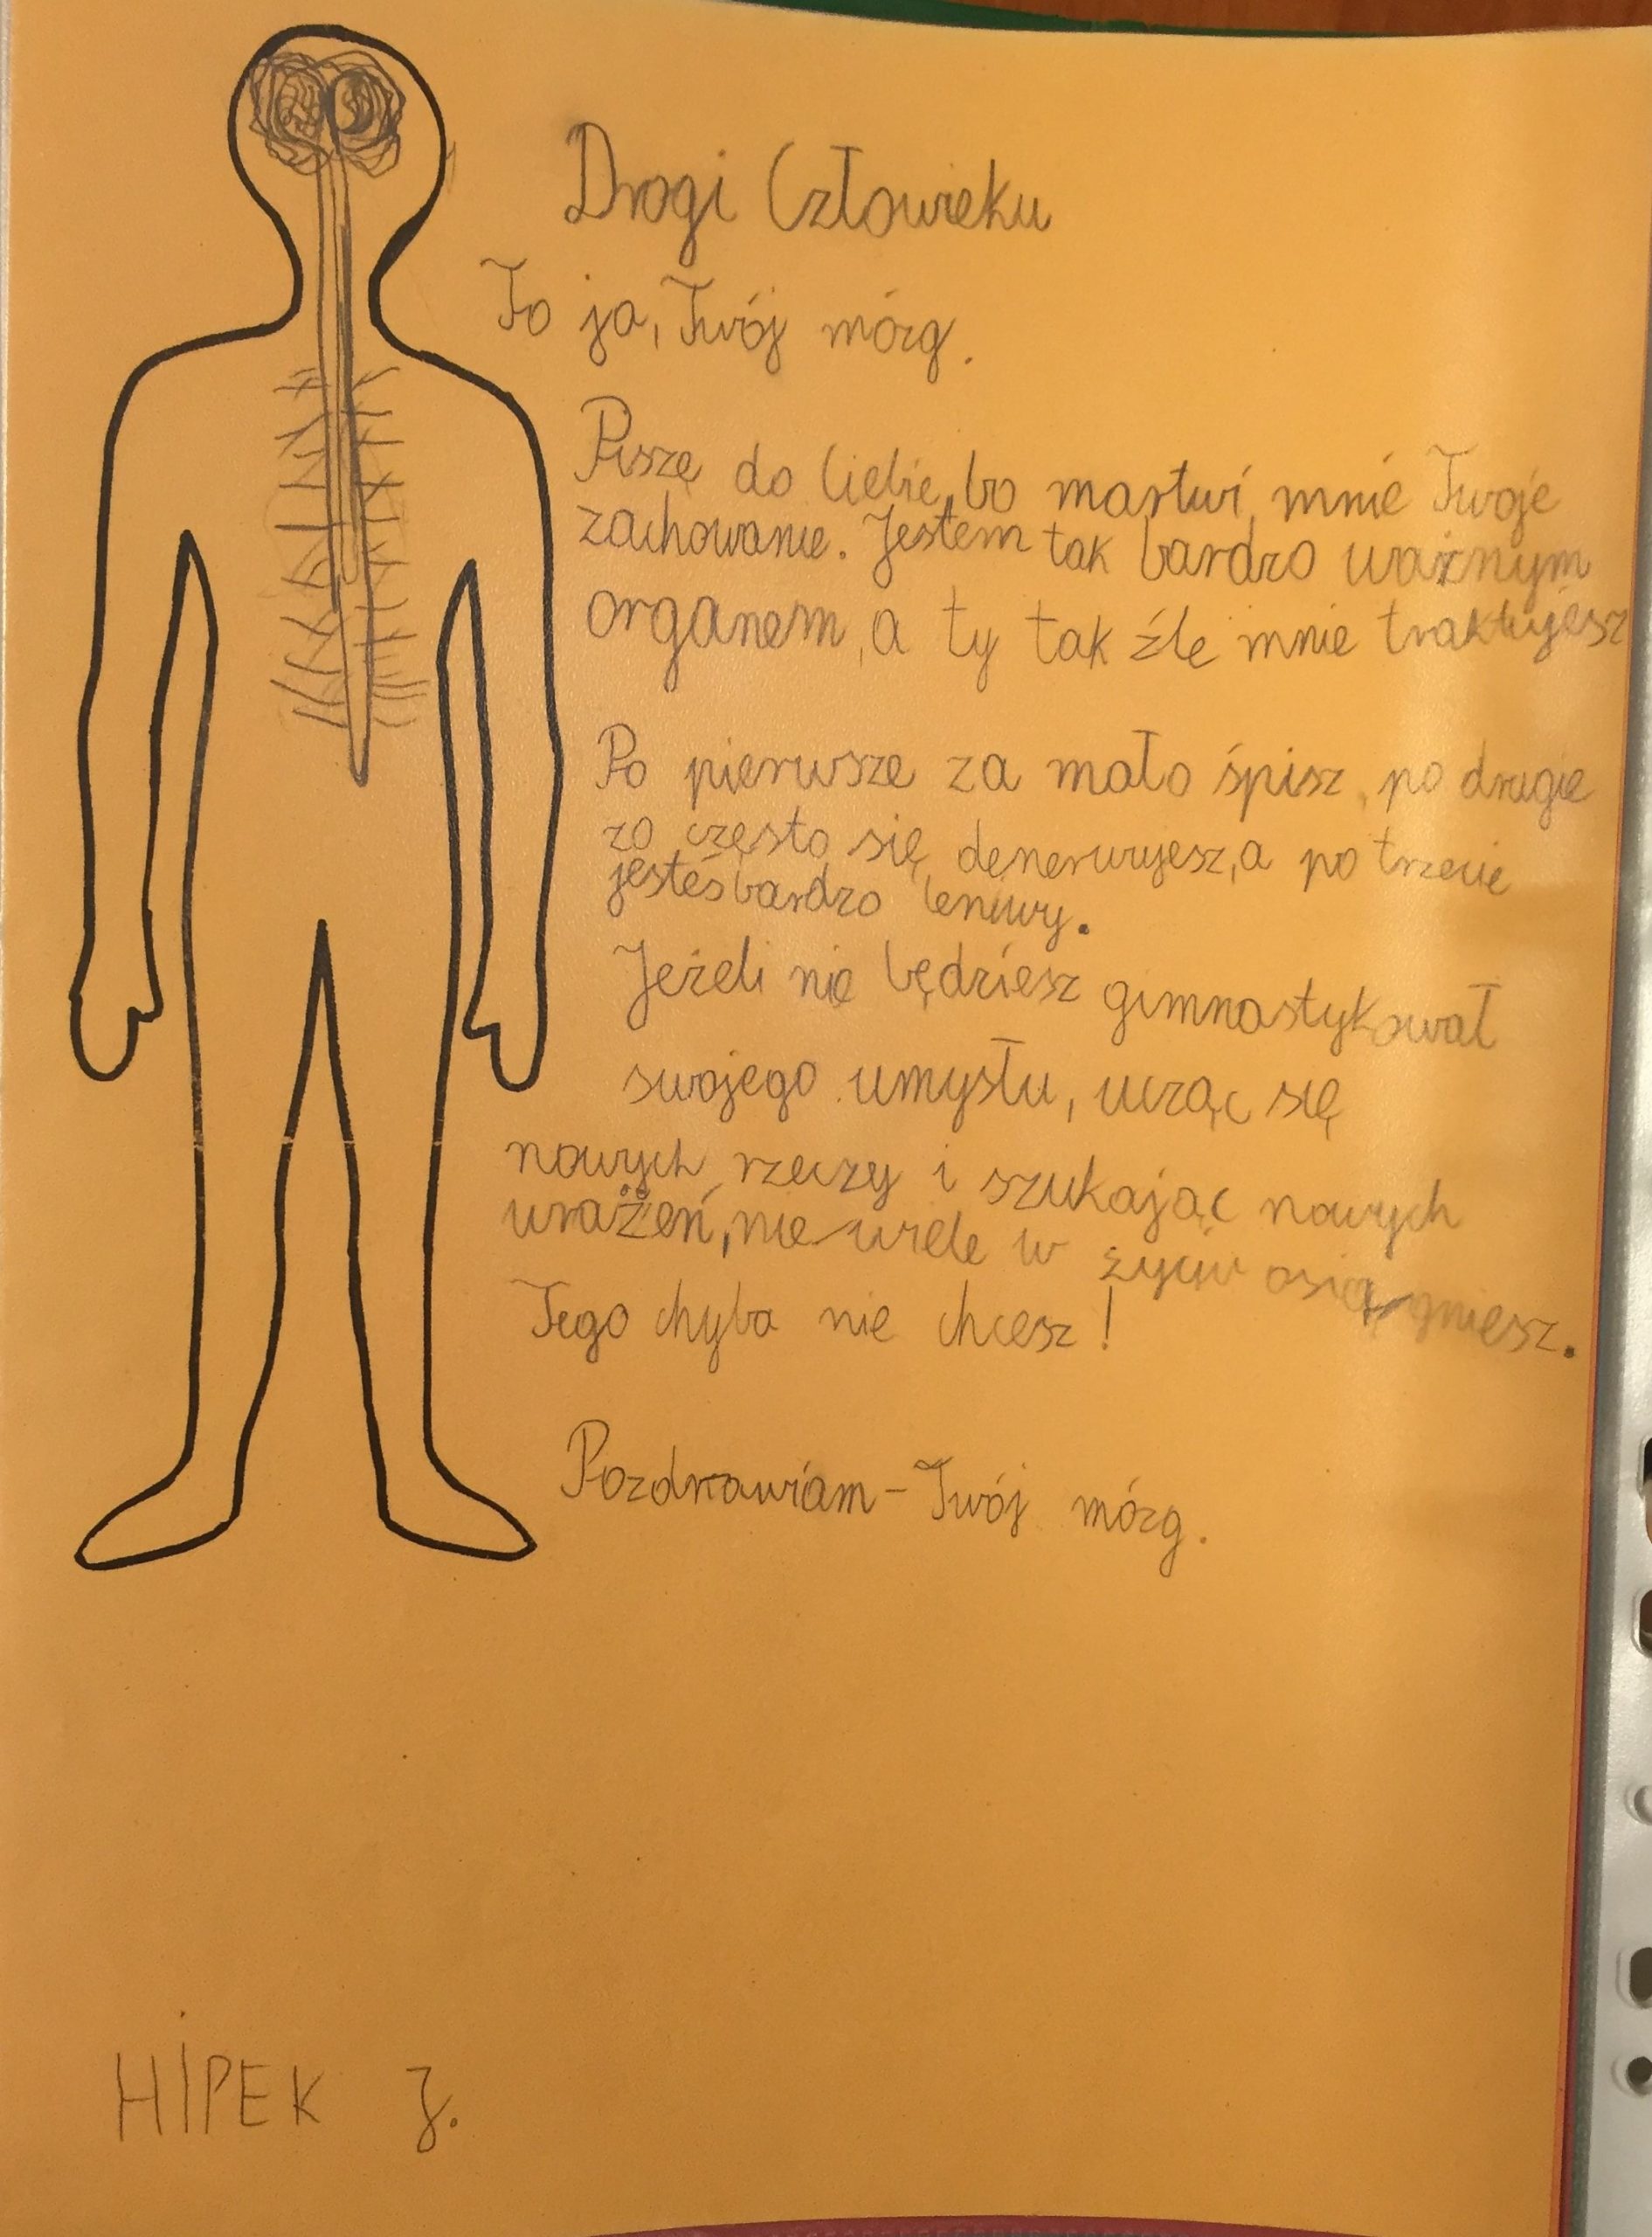 Drogi Człowieku
To ja, Twój mózg.
Piszę do Ciebie, bo martwi mnie Twoje
zachowanie. Jestem tak bardzo ważnym
organem, a ty tak źle mnie traktujesz
Po pierwsze za mało śpisz, po drugie
za często się denerwujesz, a po trzecie
jesteś bardzo leniwy.
Jeżeli nie będziesz gimnastykował
swojego umysłu, ucząc się
nowych rzeczy i szukając nowych
wrażeń, nie wiele w życiu osiągniesz.
Tego chyba nie chcesz!
Pozdrawiam - Twój mózg.
HIPEK J.